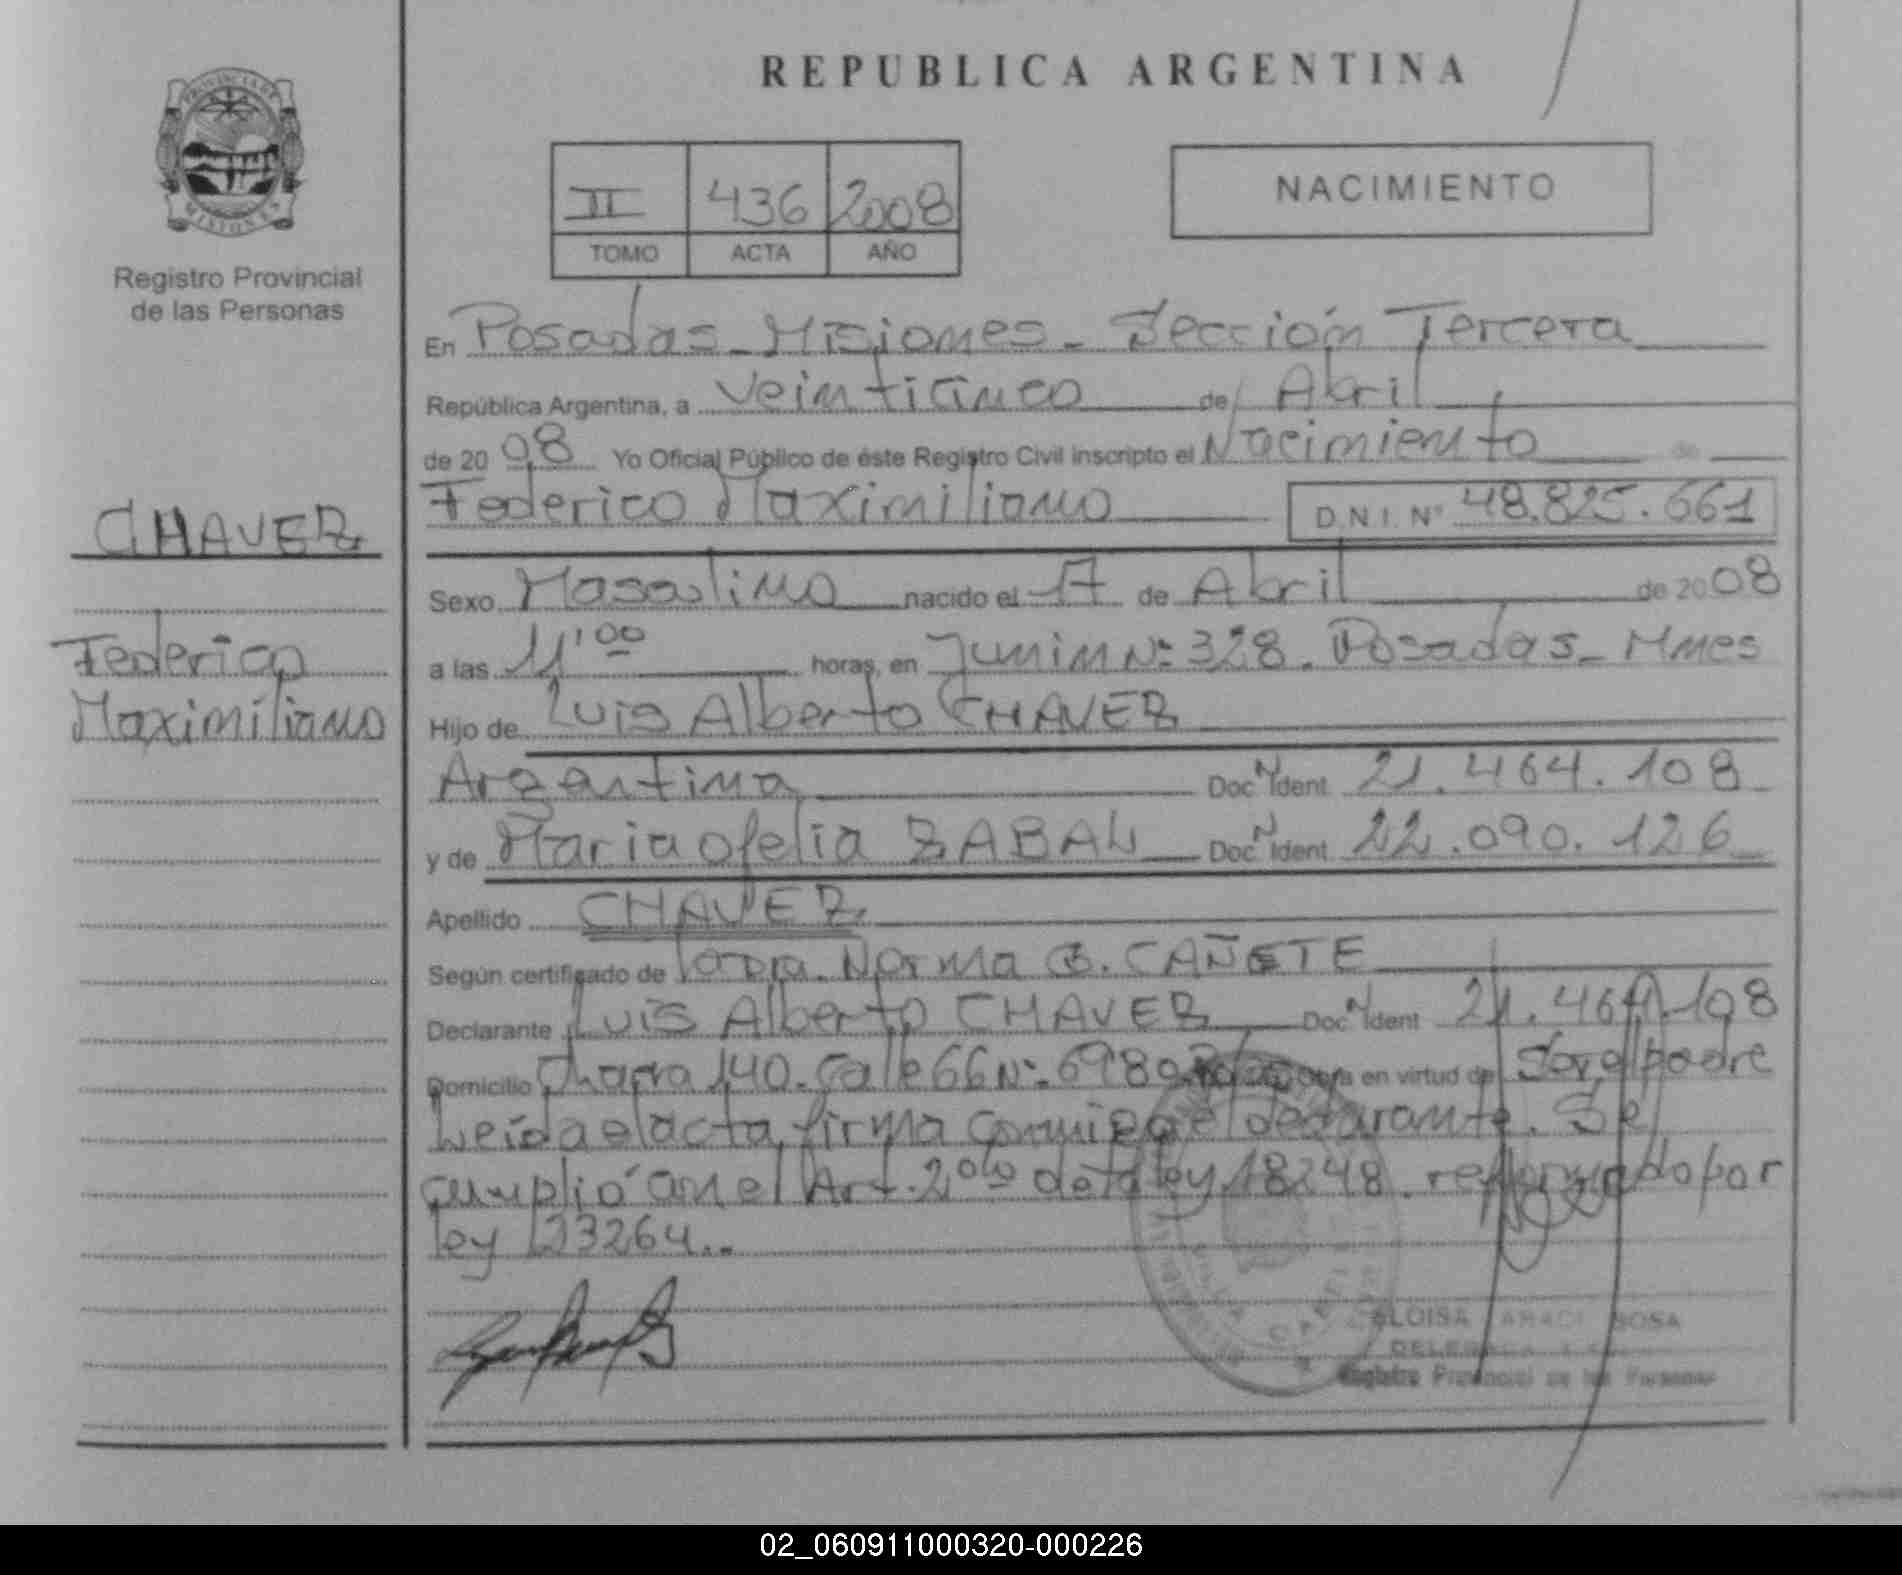 REPUBLICA ARGENTINA
PROVINCIA DE
MISIONES
Registro Provincial
de las Personas
II 436 2008
TOMO ACTA AÑO
NACIMIENTO
En Posadas - Misiones - Sección Tercera
República Argentina, a veinticinco de Abril
de 20 08 Yo Oficial Público de éste Registro Civil inscripto el Nacimiento de
Federico Maximiliano D.N.I. Nº 48.825.661
CHAVEZ
Federico
Maximiliano
Sexo Masculino nacido el 17 de Abril de 20 08
a las 11'00 horas, en Junin Nº 328. Posadas - Mnes
Hijo de Luis Alberto CHAVEZ
Argentina Doc. N Ident 21.464.108
y de Maria ofelia ZABAL Doc. N Ident 22.090.126
Apellido CHAVEZ
Según certificado de la Dra. Norma B. CAÑETE
Declarante Luis Alberto CHAVEZ Doc. N Ident 21.464.108
Domicilio Chacra 140. Calle 66 Nº 6980 en virtud de Ser el padre
Leida el acta, firma conmigo el declarante. Se
cumplió con el Art. 2º de la ley 18248. reformado por
ley 23264..
ELOISA ARACI SOSA
DELEGADA
Registro Provincial de las Personas
02_060911000320-000226